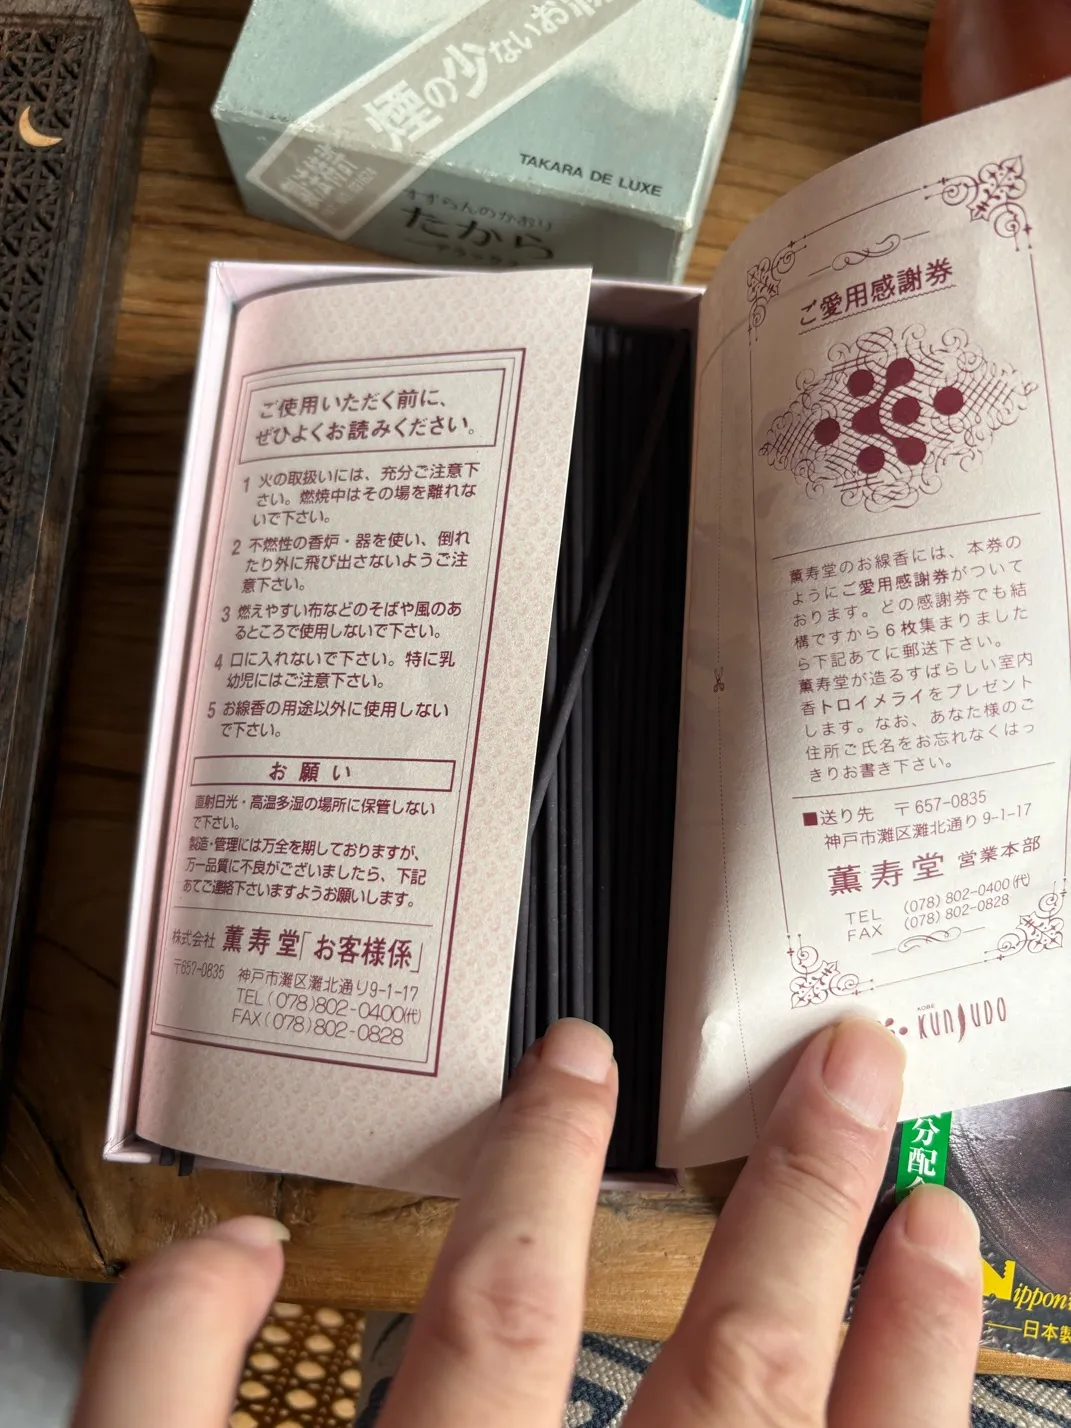 煙の少ないお線
TAKARA DE LUXE
すずらんのかおり
たから
デラックス
ご使用いただく前に、
ぜひよくお読みください。
1 火の取扱いには、充分ご注意下
さい。燃焼中はその場を離れな
いで下さい。
2 不燃性の香炉・器を使い、倒れ
たり外に飛び出さないようご注
意下さい。
3 燃えやすい布などのそばや風のあ
るところで使用しないで下さい。
4 口に入れないで下さい。特に乳
幼児にはご注意下さい。
5 お線香の用途以外に使用しない
で下さい。
お願い
直射日光・高温多湿の場所に保管しない
で下さい。
製造・管理には万全を期しておりますが、
万一品質に不良がございましたら、下記
あてご連絡下さいますようお願いします。
株式会社 薫寿堂「お客様係」
〒657-0835 神戸市灘区灘北通り9-1-17
TEL(078)802-0400(代)
FAX(078)802-0828
ご愛用感謝券
薫寿堂のお線香には、本券の
ようにご愛用感謝券がついて
おります。どの感謝券でも結
構ですから6枚集まりました
ら下記あてに郵送下さい。
薫寿堂が造るすばらしい室内
香トロイメライをプレゼント
します。なお、あなた様のご
住所ご氏名をお忘れなくはっ
きりお書き下さい。
■送り先 〒657-0835
神戸市灘区灘北通り9-1-17
薫寿堂 営業本部
TEL (078)802-0400(代)
FAX (078)802-0828
KOBE
KUNJUDO
分配
Nippon
日本製